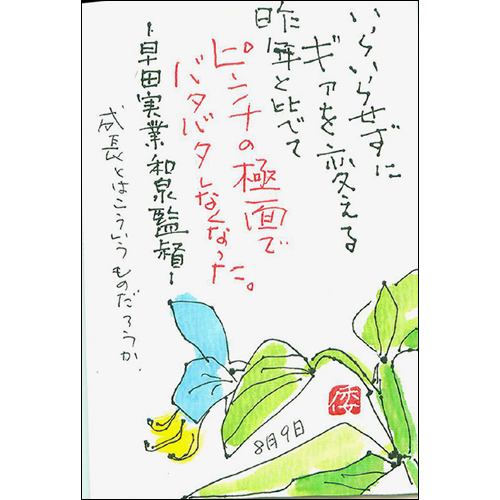 いらいらせずに
ギアを変える
昨年と比べて
ピンチの極面で
バタバタしなくなった。
-早田実業 和泉監督-
成長とはこういうものだろうか.
倭
8月9日